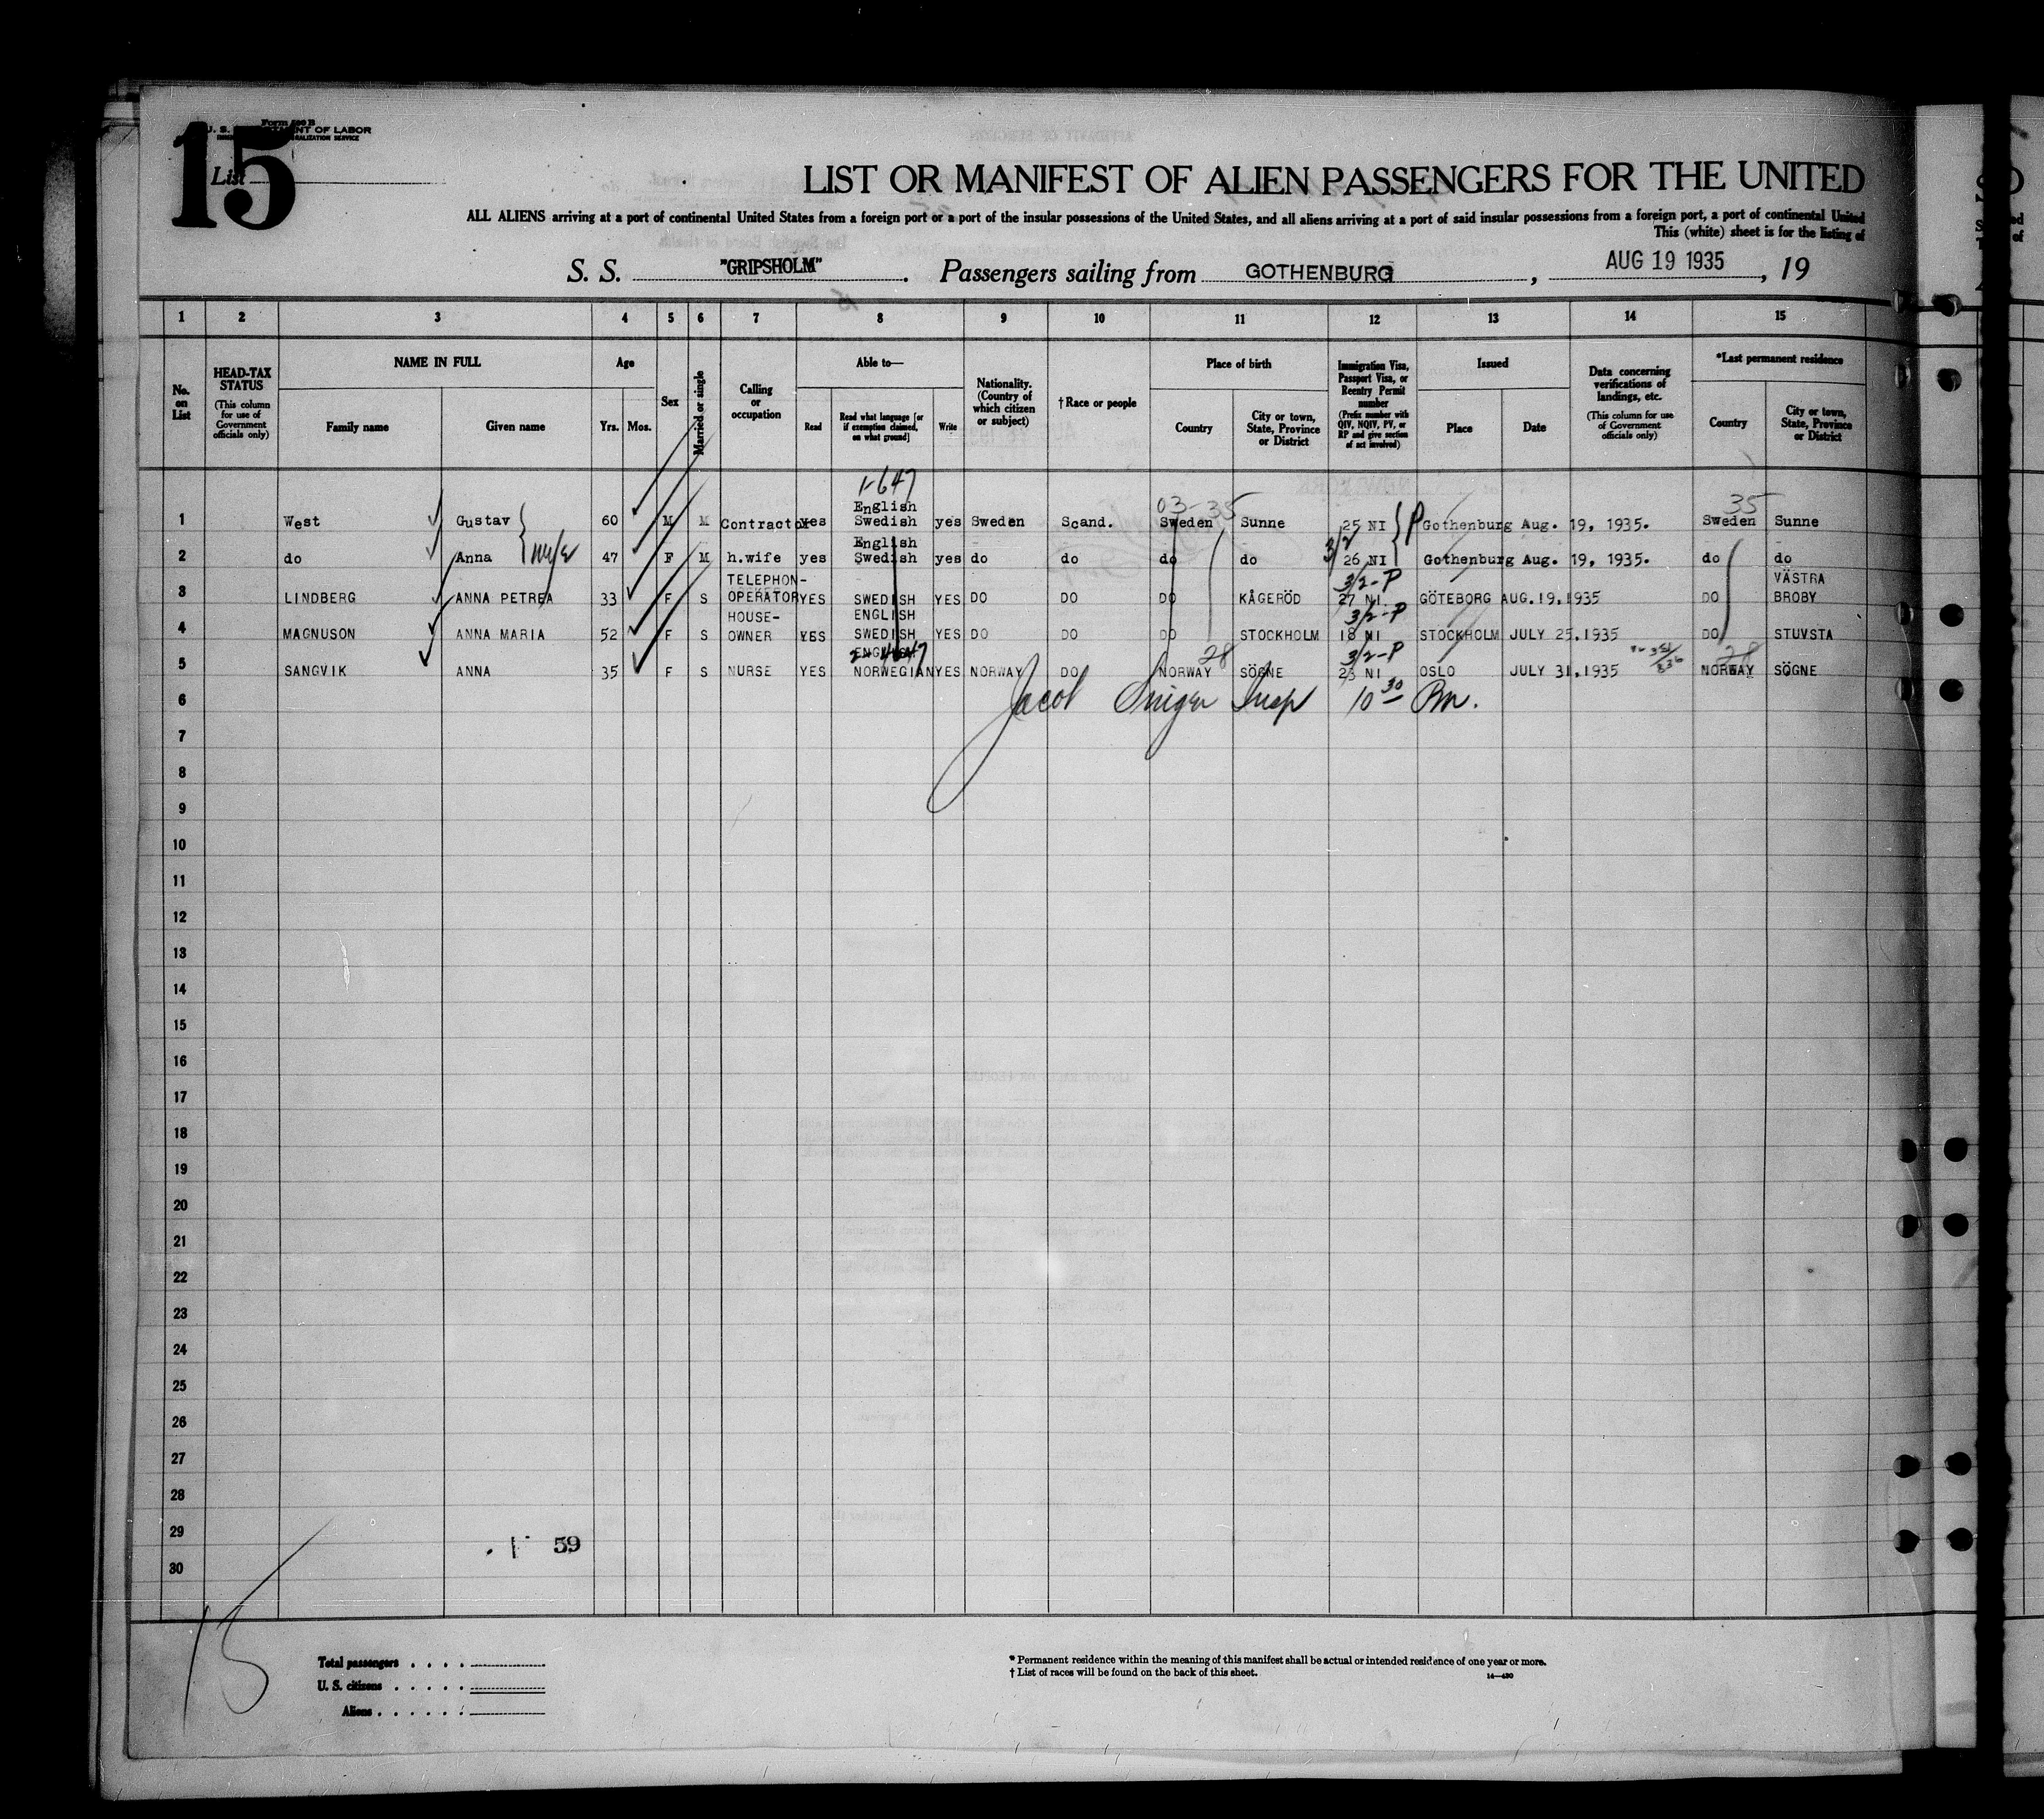 15
Form 500 B
U. S. DEPARTMENT OF LABOR
List
LIST OR MANIFEST OF ALIEN PASSENGERS FOR THE UNITED
ALL ALIENS arriving at a port of continental United States from a foreign port or a port of the insular possessions of the United States, and all aliens arriving at a port of said insular possessions from a foreign port, a port of continental United
This (white) sheet is for the listing of
S. S. "GRIPSHOLM". Passengers sailing from GOTHENBURG, AUG 19 1935, 19
1 2 3 4 5 6 7 8 9 10 11 12 13 14 15
No. on List
HEAD-TAX STATUS (This column for use of Government officials only)
NAME IN FULL
Family name Given name
Age
Yrs. Mos.
Sex
Married or single
Calling or occupation
Able to—
Read
Read what language [or if exemption claimed, on what ground]
Write
Nationality. (Country of which citizen or subject)
† Race or people
Place of birth
Country
City or town, State, Province or District
Immigration Visa, Passport Visa, or Reentry Permit number (Prefix number with QIV, NQIV, PV, or RP and give section of act involved)
Issued
Place Date
Data concerning verifications of landings, etc. (This column for use of Government officials only)
*Last permanent residence
Country
City or town, State, Province or District
1-647
03-35 35
English
1 West Gustav 60 M M Contractor yes Swedish yes Sweden Scand. Sweden Sunne 25 NI P Gothenburg Aug. 19, 1935. Sweden Sunne
wife
English
3/2
2 do Anna 47 F M h.wife yes Swedish yes do do do do 26 NI Gothenburg Aug. 19, 1935. do do
TELEPHON- 3/2-P VÄSTRA
3 LINDBERG ANNA PETREA 33 F S OPERATOR YES SWEDISH YES DO DO DO KÅGERÖD 27 NI GÖTEBORG AUG.19,1935 DO BROBY
HOUSE- ENGLISH 3/2-P
4 MAGNUSON ANNA MARIA 52 F S OWNER YES SWEDISH YES DO DO DO STOCKHOLM 18 NI STOCKHOLM JULY 25,1935 DO STUVSTA
ENGLISH 28 3/2-P 28
5 SANGVIK ANNA 35 F S NURSE YES NORWEGIAN YES NORWAY DO NORWAY SÖGNE 23 NI OSLO JULY 31,1935 NORWAY SÖGNE
6 Jacob Singer Insp 10 30 Pm.
7
8
9
10
11
12
13
14
15
16
17
18
19
20
21
22
23
24
25
26
27
28
29
59
30
15
Total passengers
U. S. citizens
Aliens
* Permanent residence within the meaning of this manifest shall be actual or intended residence of one year or more.
† List of races will be found on the back of this sheet.
14—430